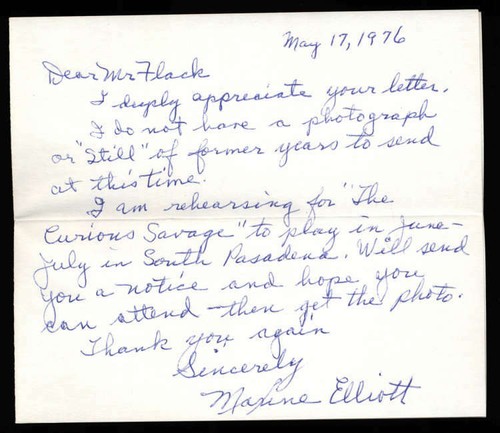 May 17, 1976
Dear Mr Flack
I deeply appreciate your letter.
I do not have a photograph
or "Still" of former years to send
at this time.
I am rehearsing for "The
Curious Savage" to play in June-
July in South Pasadena. Will send
you a notice and hope you
can attend - then get the photo.
Thank you again
Sincerely
Maxine Elliott